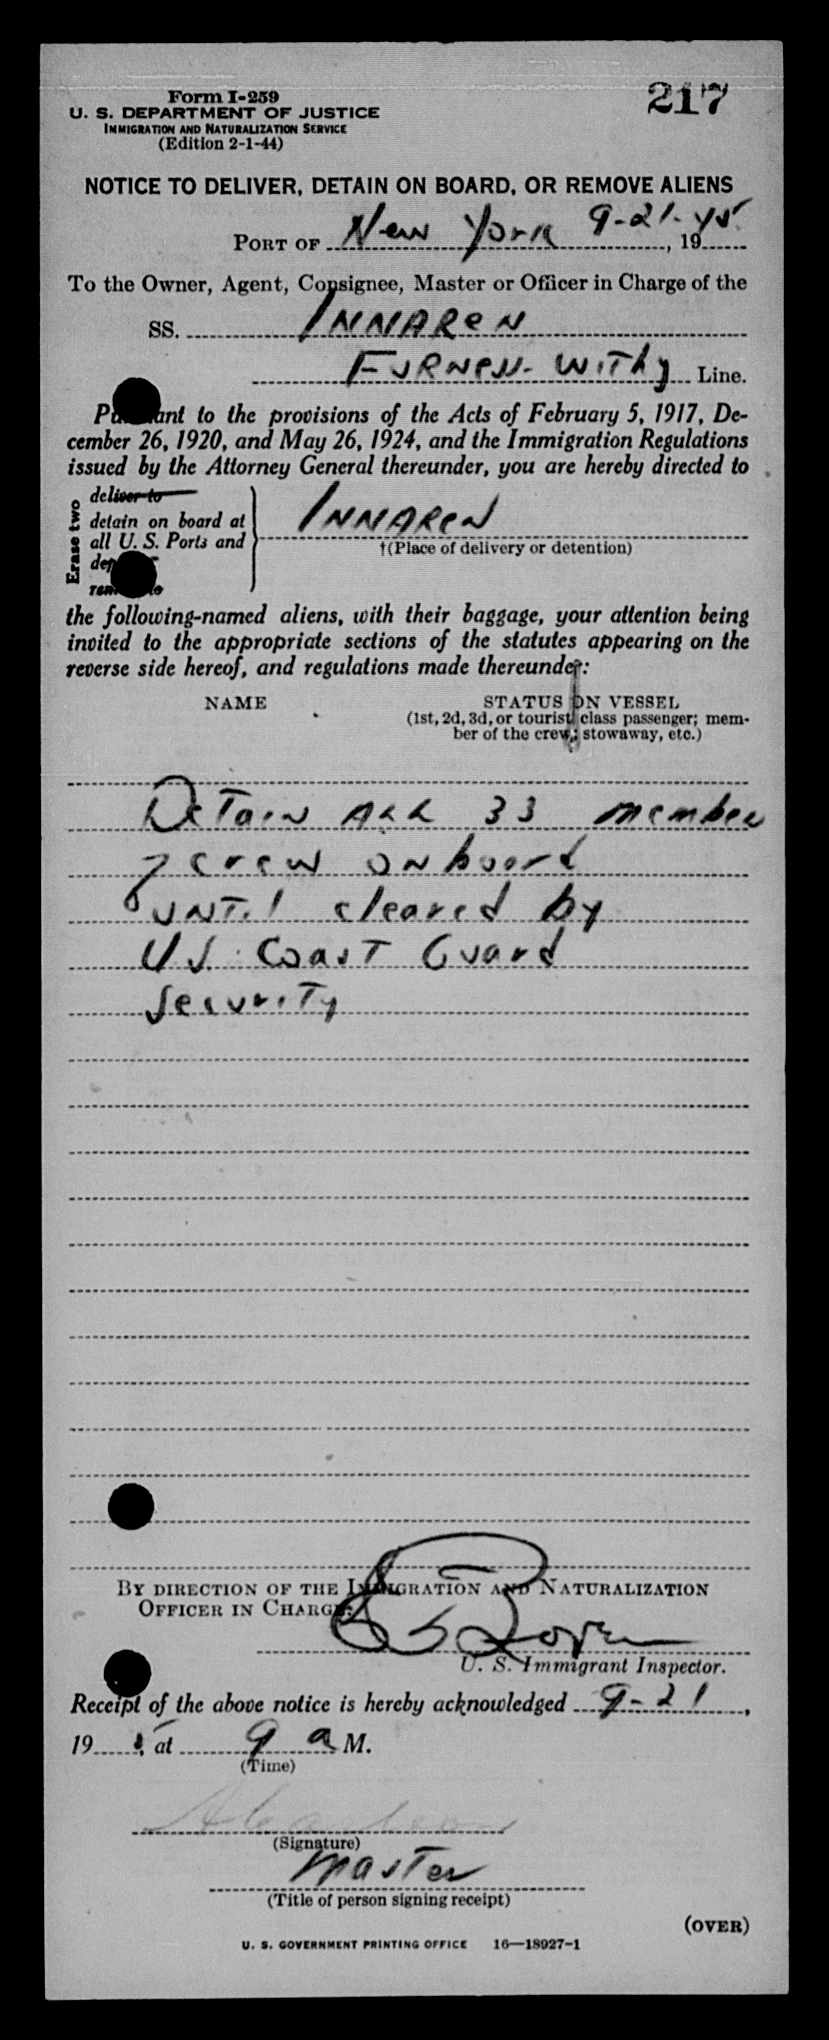 Form I-259
217
U. S. DEPARTMENT OF JUSTICE
IMMIGRATION AND NATURALIZATION SERVICE
(Edition 2-1-44)
NOTICE TO DELIVER, DETAIN ON BOARD, OR REMOVE ALIENS
PORT OF New York 9-21-45, 19
To the Owner, Agent, Consignee, Master or Officer in Charge of the
SS. INNAREN
FURNESS-WITHY Line.
Pursuant to the provisions of the Acts of February 5, 1917, De-
cember 26, 1920, and May 26, 1924, and the Immigration Regulations
issued by the Attorney General thereunder, you are hereby directed to
Erase two
deliver to
detain on board at
all U. S. Ports and
INNAREN
†(Place of delivery or detention)
the following-named aliens, with their baggage, your attention being
invited to the appropriate sections of the statutes appearing on the
reverse side hereof, and regulations made thereunder:
NAME
STATUS ON VESSEL
(1st, 2d, 3d, or tourist class passenger; mem-
ber of the crew; stowaway, etc.)
Detain ALL 33 members
of crew on board
until cleared by
US Coast Guard
Security
BY DIRECTION OF THE IMMIGRATION AND NATURALIZATION
OFFICER IN CHARGE:
U. S. Immigrant Inspector.
Receipt of the above notice is hereby acknowledged 9-21,
19 , at 9 a M.
(Time)
(Signature)
Master
(Title of person signing receipt)
(OVER)
U. S. GOVERNMENT PRINTING OFFICE 16—18927-1